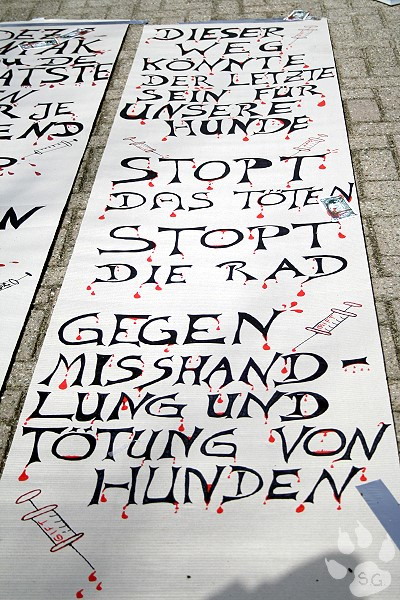 OU DE
ATSTE
R JE
END
DIESER
WEG
KÖNNTE
DER LETZTE
SEIN FÜR
UNSERE
HUNDE
STOPT
DAS TÖTEN
STOPT
DIE RAD
GEGEN
MISSHAND-
LUNG UND
TÖTUNG VON
HUNDEN
GIFT
S.G.